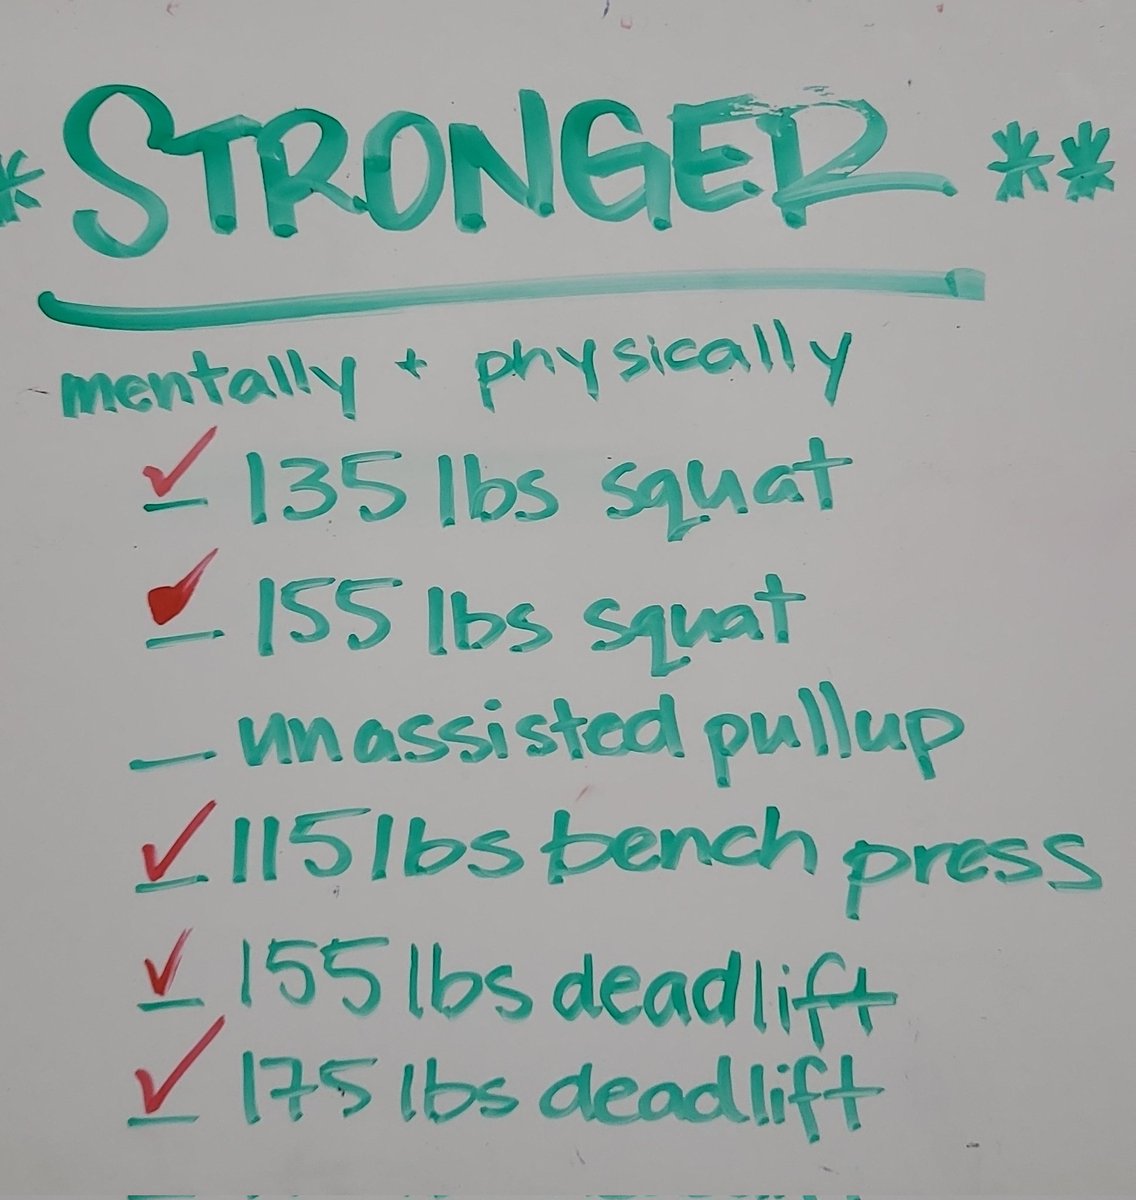 * STRONGER **
mentally + physically
✓ 135 lbs squat
✓ 155 lbs squat
_ unassisted pullup
✓ 115 lbs bench press
✓ 155 lbs deadlift
✓ 175 lbs deadlift